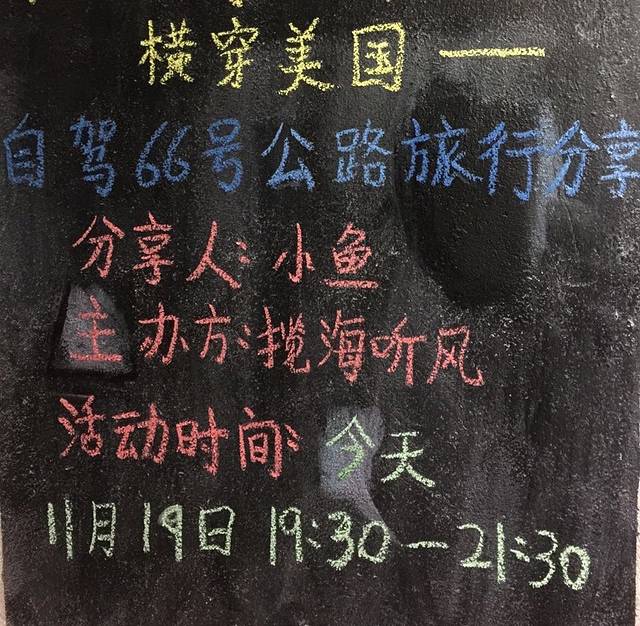 横穿美国一
自驾66号公路旅行分享
分享人:小鱼
主办方:揽海听风
活动时间:今天
11月19日 19:30-21:30